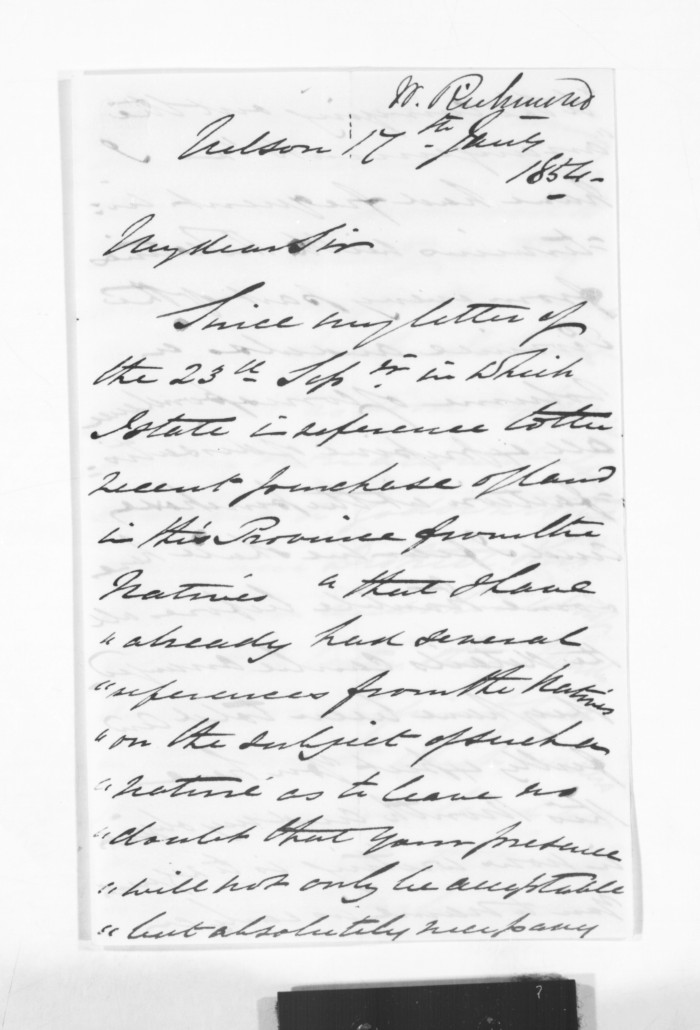 W. Richmond
Nelson 17th Jany
1854
My dear Sir
Since my letter of
the 23th Sepr in which
I state in reference to the
recent purchase of land
in this Province from the
Natives "that I have
"already had several
"references from the Natives
"on the subject of such a
"nature as to leave no
"doubt that your presence
"will not only be acceptable
"but absolutely necessary